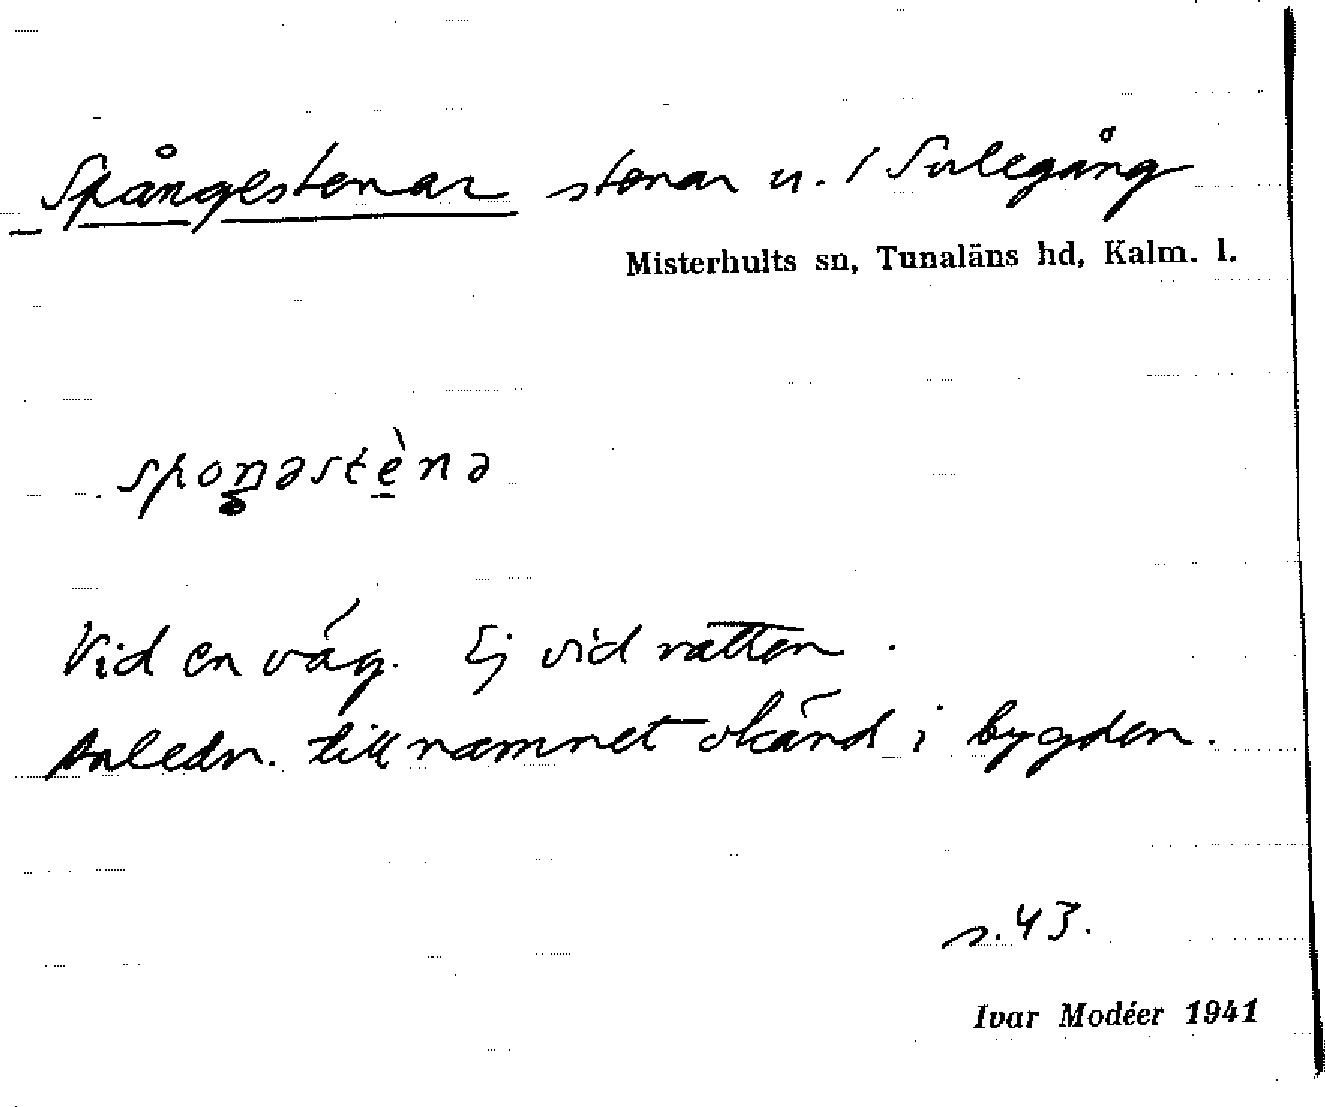 Spångestenar stenar u. / Sulegång
Misterhults sn, Tunaläns hd, Kalm. l.
spoŋəstènə
Vid en väg. Ej vid vatten.
Anledn. till namnet okänd i bygden.
s. 43.
Ivar Modéer 1941